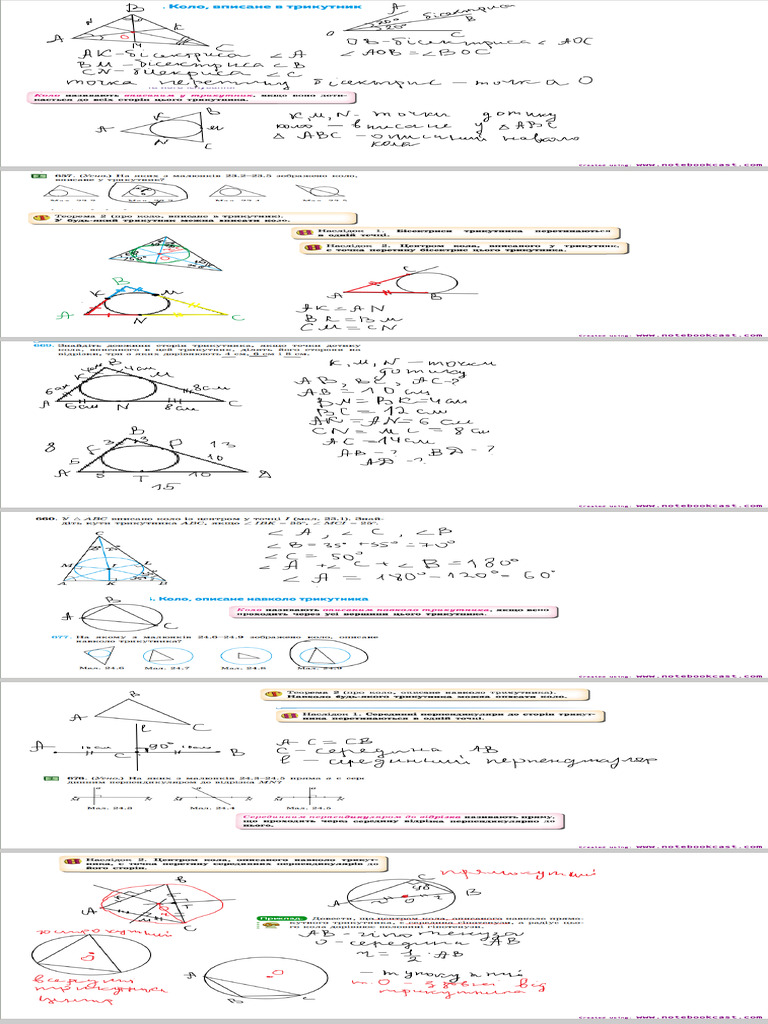 . Коло, вписане в трикутник
B
A
C
K
N
M
O
A
бісектриса
20°
20°
O
C
AK-бісектриса <A
BM-бісектриса <B
CN-бісектриса <C
точка перетину бісектрис - точка O
OB-бісектриса <AOC
<AOB=<BOC
Коло називають вписаним у трикутник, якщо воно доти-
кається до всіх сторін цього трикутника.
K
B
A
M
N
C
K, M, N- точки дотику
коло - вписане у △ABC
△ABC-описаний навколо
кола
Created using: www.notebookcast.com
657. (Усно.) На яких з малюнків 23.2–23.5 зображено коло,
вписане у трикутник?
Теорема 2 (про коло, вписане в трикутник).
У будь-який трикутник можна вписати коло.
Наслідок 1. Бісектриси трикутника перетинаються
в одній точці.
Наслідок 2. Центром кола, вписаного у трикутник,
є точка перетину бісектрис цього трикутника.
B
K
M
A
N
C
A
C
B
AK=AN
BK=BM
CM=CN
Created using: www.notebookcast.com
Знайдіть довжини сторін трикутника, якщо точки дотику
кола, вписаного в цей трикутник, ділять його сторони на
відрізки, три з яких дорівнюють 4 см, 6 см і 8 см.
B
K
4см
4см
M
6см
8см
A
6см
N
8см
C
K, M, N - точки
дотику
AB, BC, AC-?
AB=10см
BM=BK=4см
BC=12см
AK=AN=6см
CN=MC=8см
AC=14см
AB-? BD-?
AD-?
8
B
3
3
P
13
F
5
10
A
5
T
10
D
15
Created using: www.notebookcast.com
660. У △ABC вписано коло із центром у точці I (мал. 23.1). Знай-
діть кути трикутника ABC, якщо ∠IBK = 35°, ∠MCI = 25°.
C
M
L
I
A
K
B
<A, <C, <B
<B=35°+35°=70°
<C=50°
<A+<C+<B=180°
<A=180°-120°=60°
. Коло, описане навколо трикутника
B
A
C
Коло називають описаним навколо трикутника, якщо воно
проходить через усі вершини цього трикутника.
677. На якому з малюнків 24.6–24.9 зображено коло, описане
навколо трикутника?
Мал. 24.6 Мал. 24.7 Мал. 24.8 Мал. 24.9
Created using: www.notebookcast.com
Теорема 2 (про коло, описане навколо трикутника).
Навколо будь-якого трикутника можна описати коло.
Наслідок 1. Серединні перпендикуляри до сторін трикут-
ника перетинаються в одній точці.
B
A
C
l
A
90°
C
B
AC=CB
C-середина AB
l-серединний перпендикуляр
678. (Усно.) На яких з малюнків 24.3–24.5 пряма a є сере-
динним перпендикуляром до відрізка MN?
Мал. 24.3 Мал. 24.4 Мал. 24.5
Серединним перпендикуляром до відрізка називають пряму,
що проходить через середину відрізка перпендикулярно до
нього.
Created using: www.notebookcast.com
Наслідок 2. Центром кола, описаного навколо трикут-
ника, є точка перетину серединних перпендикулярів до
його сторін.
B
A
C
прямокутний
C
A
O
B
Приклад. Довести, що центром кола, описаного навколо прямо-
кутного трикутника, є середина гіпотенузи, а радіус цьо-
го кола дорівнює половині гіпотенузи.
AB-гіпотенуза
O-середина AB
r=1/2·AB
гострокутний
O
всередині
трикутника
центр
A
O
B
C
- тупокутний
т.O - ззовні від
трикутника
Created using: www.notebookcast.com